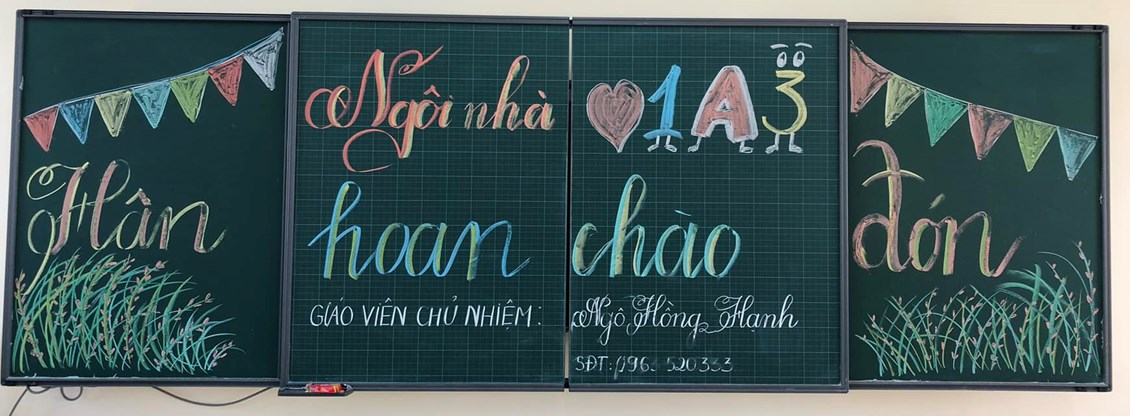 Ngôi nhà 1A3
Hân hoan chào đón
GIÁO VIÊN CHỦ NHIỆM: Ngô Hồng Hạnh
SĐT: